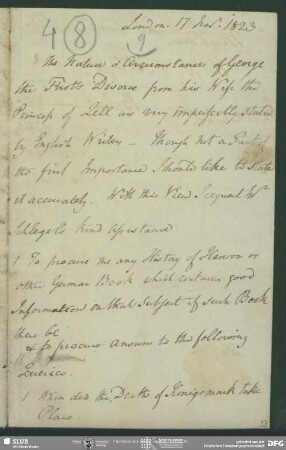 London. 17 Nov.r 1823
4 8 9
The Nature & Circumstances of George
the First's Divorce from his Wife the
Princess of Zell are very imperfectly stated
by English Writers — Though not a Fact of
the first Importance I should like to state
it accurately. With this View I request Mr
Schlegel's kind assistance
1 To procure me any History of Hanover or
other German Book which contains good
Information on that Subject if such Book
there be
& to procure answers to the following
Queries.
1 When did the Death of Konigsmark take
Place.
SLUB
DFG